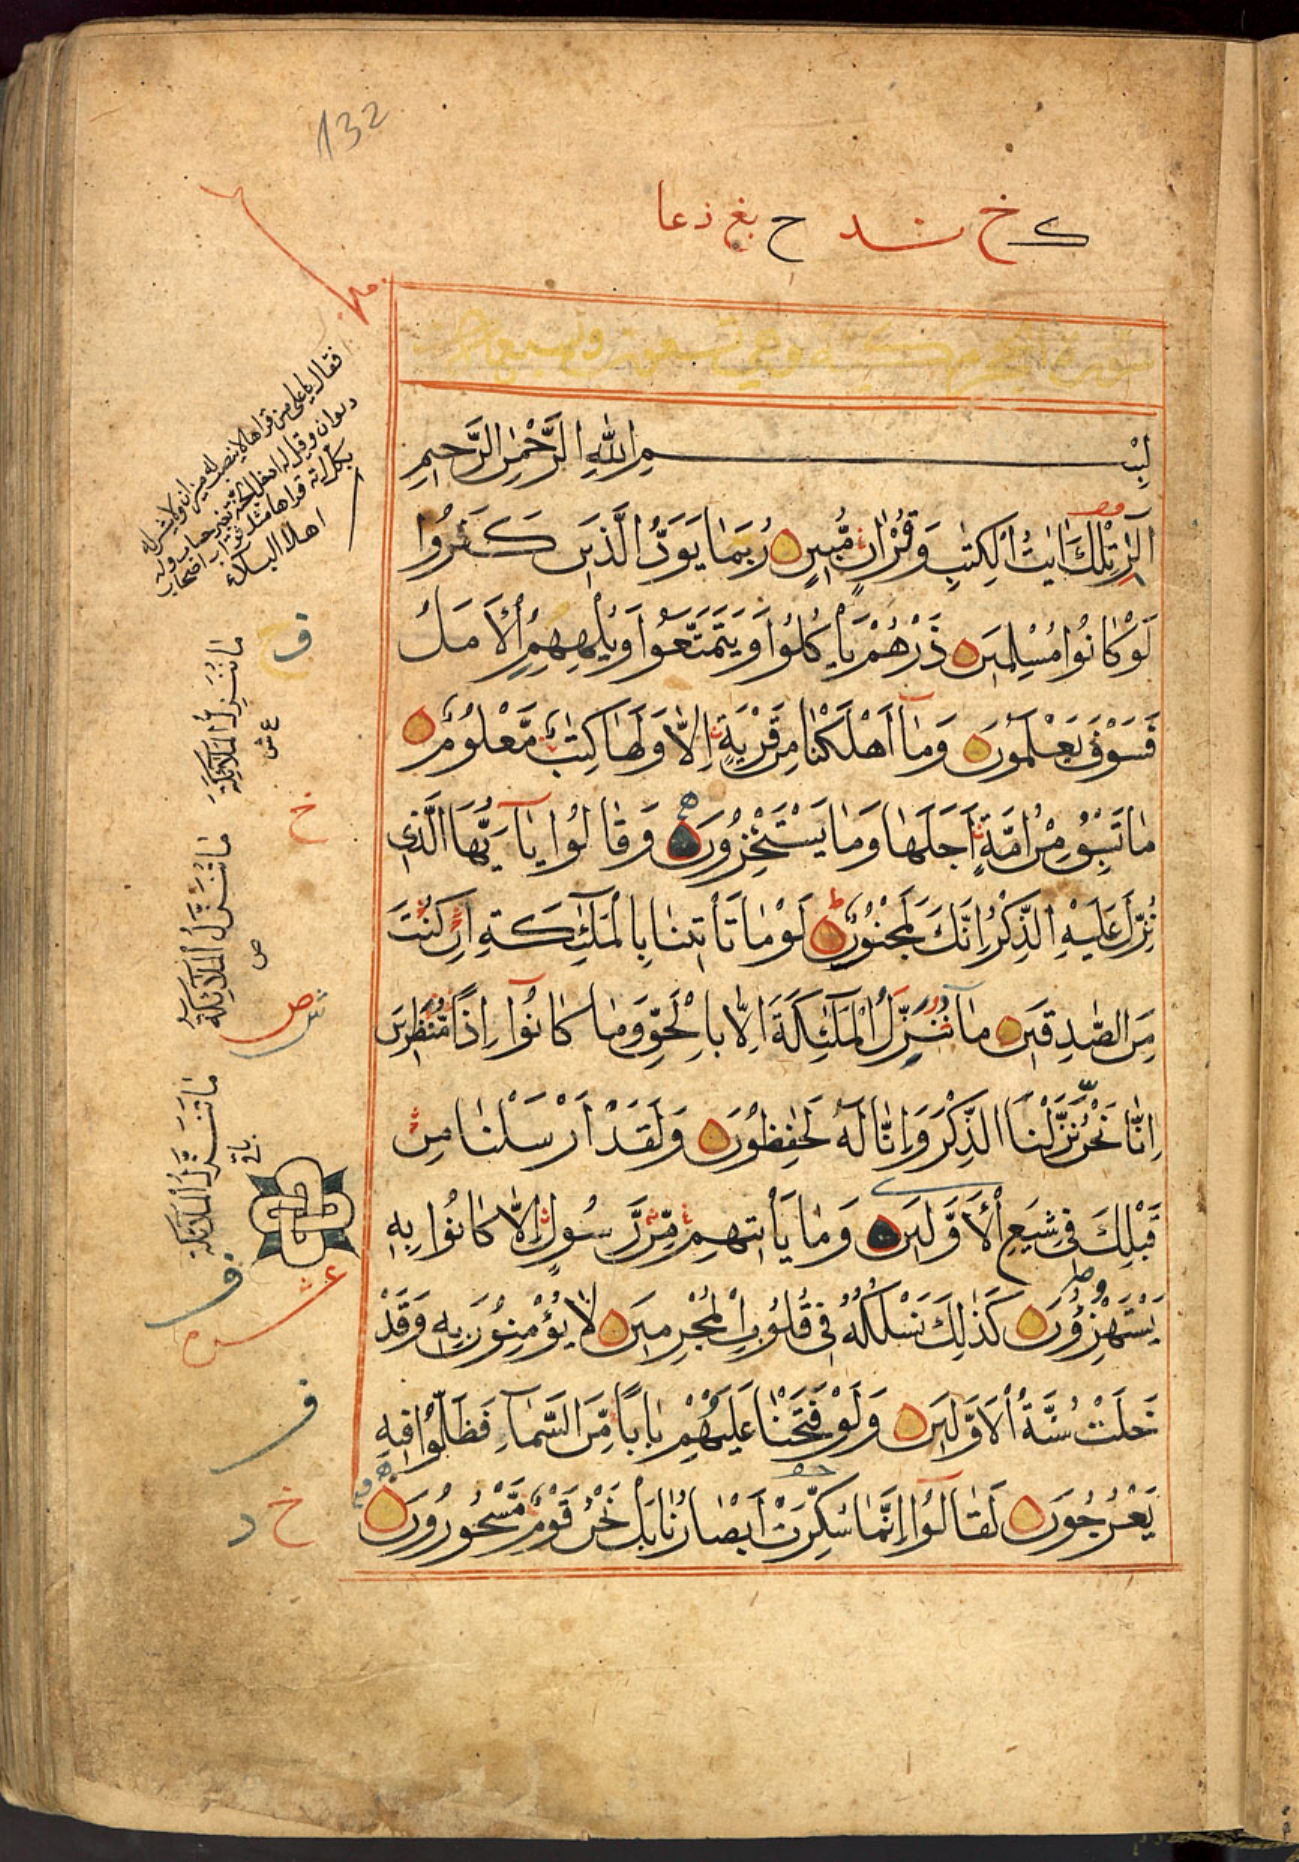 132
ك خ شد ح بغ ذعا
سورة الحجر مكية وهي تسعون وتسع آيات
بِسْمِ اللهِ الرَّحْمٰنِ الرَّحيمِ
الٓرٰ تِلْكَ اٰيٰتُ الْكِتٰبِ وَقُرْاٰنٍ مُّبينٍ رُبَمٰا يَوَدُّ الَّذينَ كَفَرُوا
لَوْ كٰانُوا مُسْلِمينَ ذَرْهُمْ يَأْكُلُوا وَيَتَمَتَّعُوا وَيُلْهِهِمُ الْاَمَلُ
فَسَوْفَ يَعْلَمُونَ وَمٰآ اَهْلَكْنٰا مِنْ قَرْيَةٍ اِلّٰا وَلَهٰا كِتٰبٌ مَّعْلُومٌ
مٰا تَسْبِقُ مِنْ اُمَّةٍ اَجَلَهٰا وَمٰا يَسْتَئْخِرُونَ وَقٰالُوا يٰآ اَيُّهَا الَّذي
نُزِّلَ عَلَيْهِ الذِّكْرُ اِنَّكَ لَمَجْنُونٌ لَوْ مٰا تَأْتينٰا بِالْمَلٰٓئِكَةِ اِنْ كُنْتَ
مِنَ الصّٰدِقينَ مٰا نُنَزِّلُ الْمَلٰٓئِكَةَ اِلّٰا بِالْحَقِّ وَمٰا كٰانُوٓا اِذًا مُّنْظَرينَ
اِنّٰا نَحْنُ نَزَّلْنَا الذِّكْرَ وَاِنّٰا لَهُ لَحٰفِظُونَ وَلَقَدْ اَرْسَلْنٰا مِنْ
قَبْلِكَ في شِيَعِ الْاَوَّلينَ وَمٰا يَأْتيهِمْ مِّنْ رَّسُولٍ اِلّٰا كٰانُوا بِهِ
يَسْتَهْزِؤُنَ كَذٰلِكَ نَسْلُكُهُ في قُلُوبِ الْمُجْرِمينَ لٰا يُؤْمِنُونَ بِهِ وَقَدْ
خَلَتْ سُنَّةُ الْاَوَّلينَ وَلَوْ فَتَحْنٰا عَلَيْهِمْ بٰابًا مِّنَ السَّمٰآءِ فَظَلُّوا فيهِ
يَعْرُجُونَ لَقٰالُوٓا اِنَّمٰا سُكِّرَتْ اَبْصٰارُنٰا بَلْ نَحْنُ قَوْمٌ مَّسْحُورُونَ
ف
مٰا نُنَزِّلُ الْمَلٰآئِكَةَ
ع ش
خ
مٰا تُنَزَّلُ الْمَلٰآئِكَةُ
ص
مٰا تَنَزَّلُ الْمَلٰآئِكَةُ
باقي
ف
ف
خ د